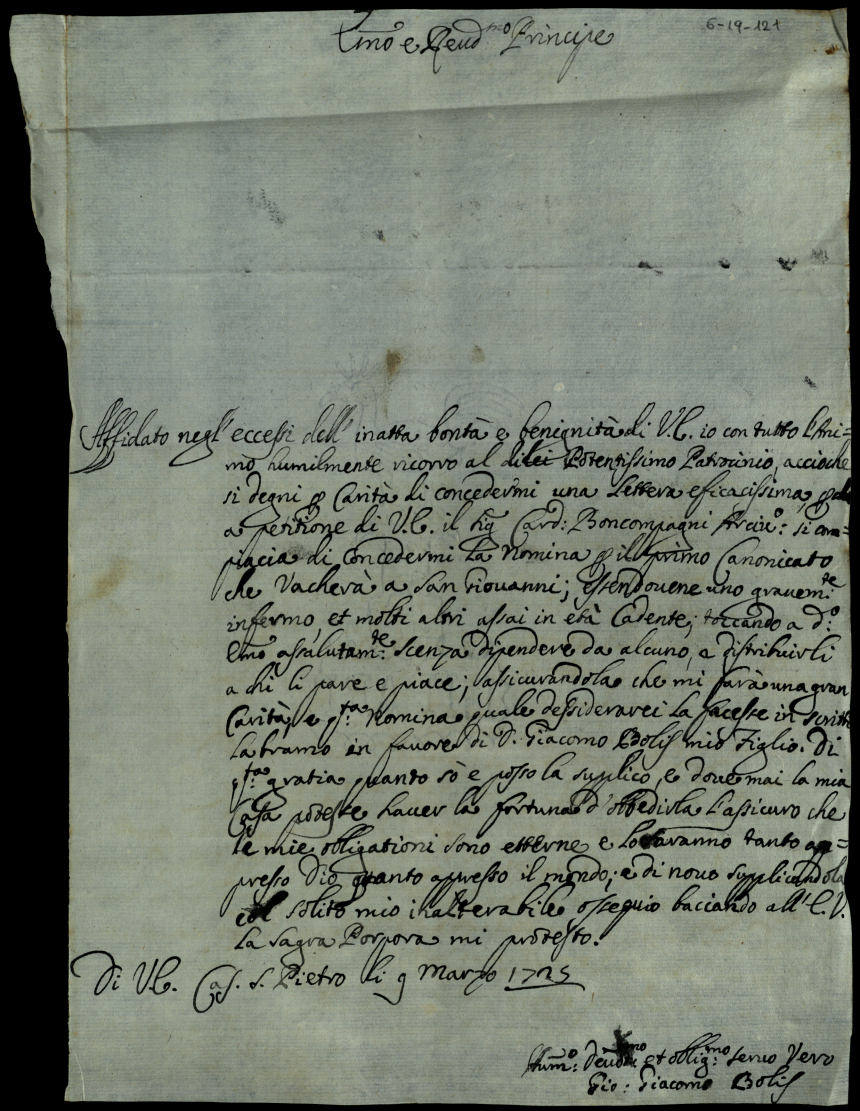 6-19-121
Emo e Reudmo Principe
Affidato negl' eccessi dell' inatta bontà e benignità di V.E. io con tutto l'Ani=
mo humilmente ricorro al di lei Potentissimo Patrocinio, accioche
si degni p Carità di concedermi una Lettera eficacissima,
a petitione di V.E. il Sig Card: Boncompagni Arciuo: si com=
piacia di Concedermi la Nomina p il primo Canonicato
che Vacherà a San Giovanni; essendouene uno grauemte
infermo, et molti altri assai in età Cadente; toccando a do:
Emo assalutamte: scenza dipendere da alcuno, a distribuirli
a chi li pare e piace; assicurandola che mi farà una gran
Carità, e psta: Nomina quale dessiderarei la facesse in scritto
la bramo in fauore di D. Giacomo Bolis mio Figlio. Di
psta: gratia quanto sò e posso la suplico, e doue mai la mia
Casa podesse hauer la fortuna d'obbedirla l'assicuro che
le mie obligationi sono etterne e lo saranno tanto ap=
presso Dio quanto appresso il mondo; e di nouo supplicandola
col solito mio inalterabile ossequio baciando all' E.V.
la Sagra Porpora mi prodesto.
Di V.E. Cas. S. Pietro li 9 Marzo 1725
Humo: Deuomo et obligmo: seruo Vero
Gio: Giacomo Bolis